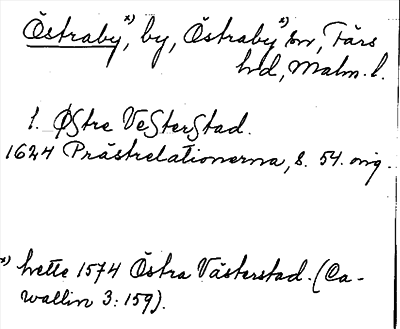 Östraby *), by, Östraby *) sn, Färs
hd, Malm. l.
1. Østre Vesterstad.
1624 Prästrelationerna, s. 54. orig.
*) hette 1574 Östra Västerstad. (Ca-
wallin 3:159).